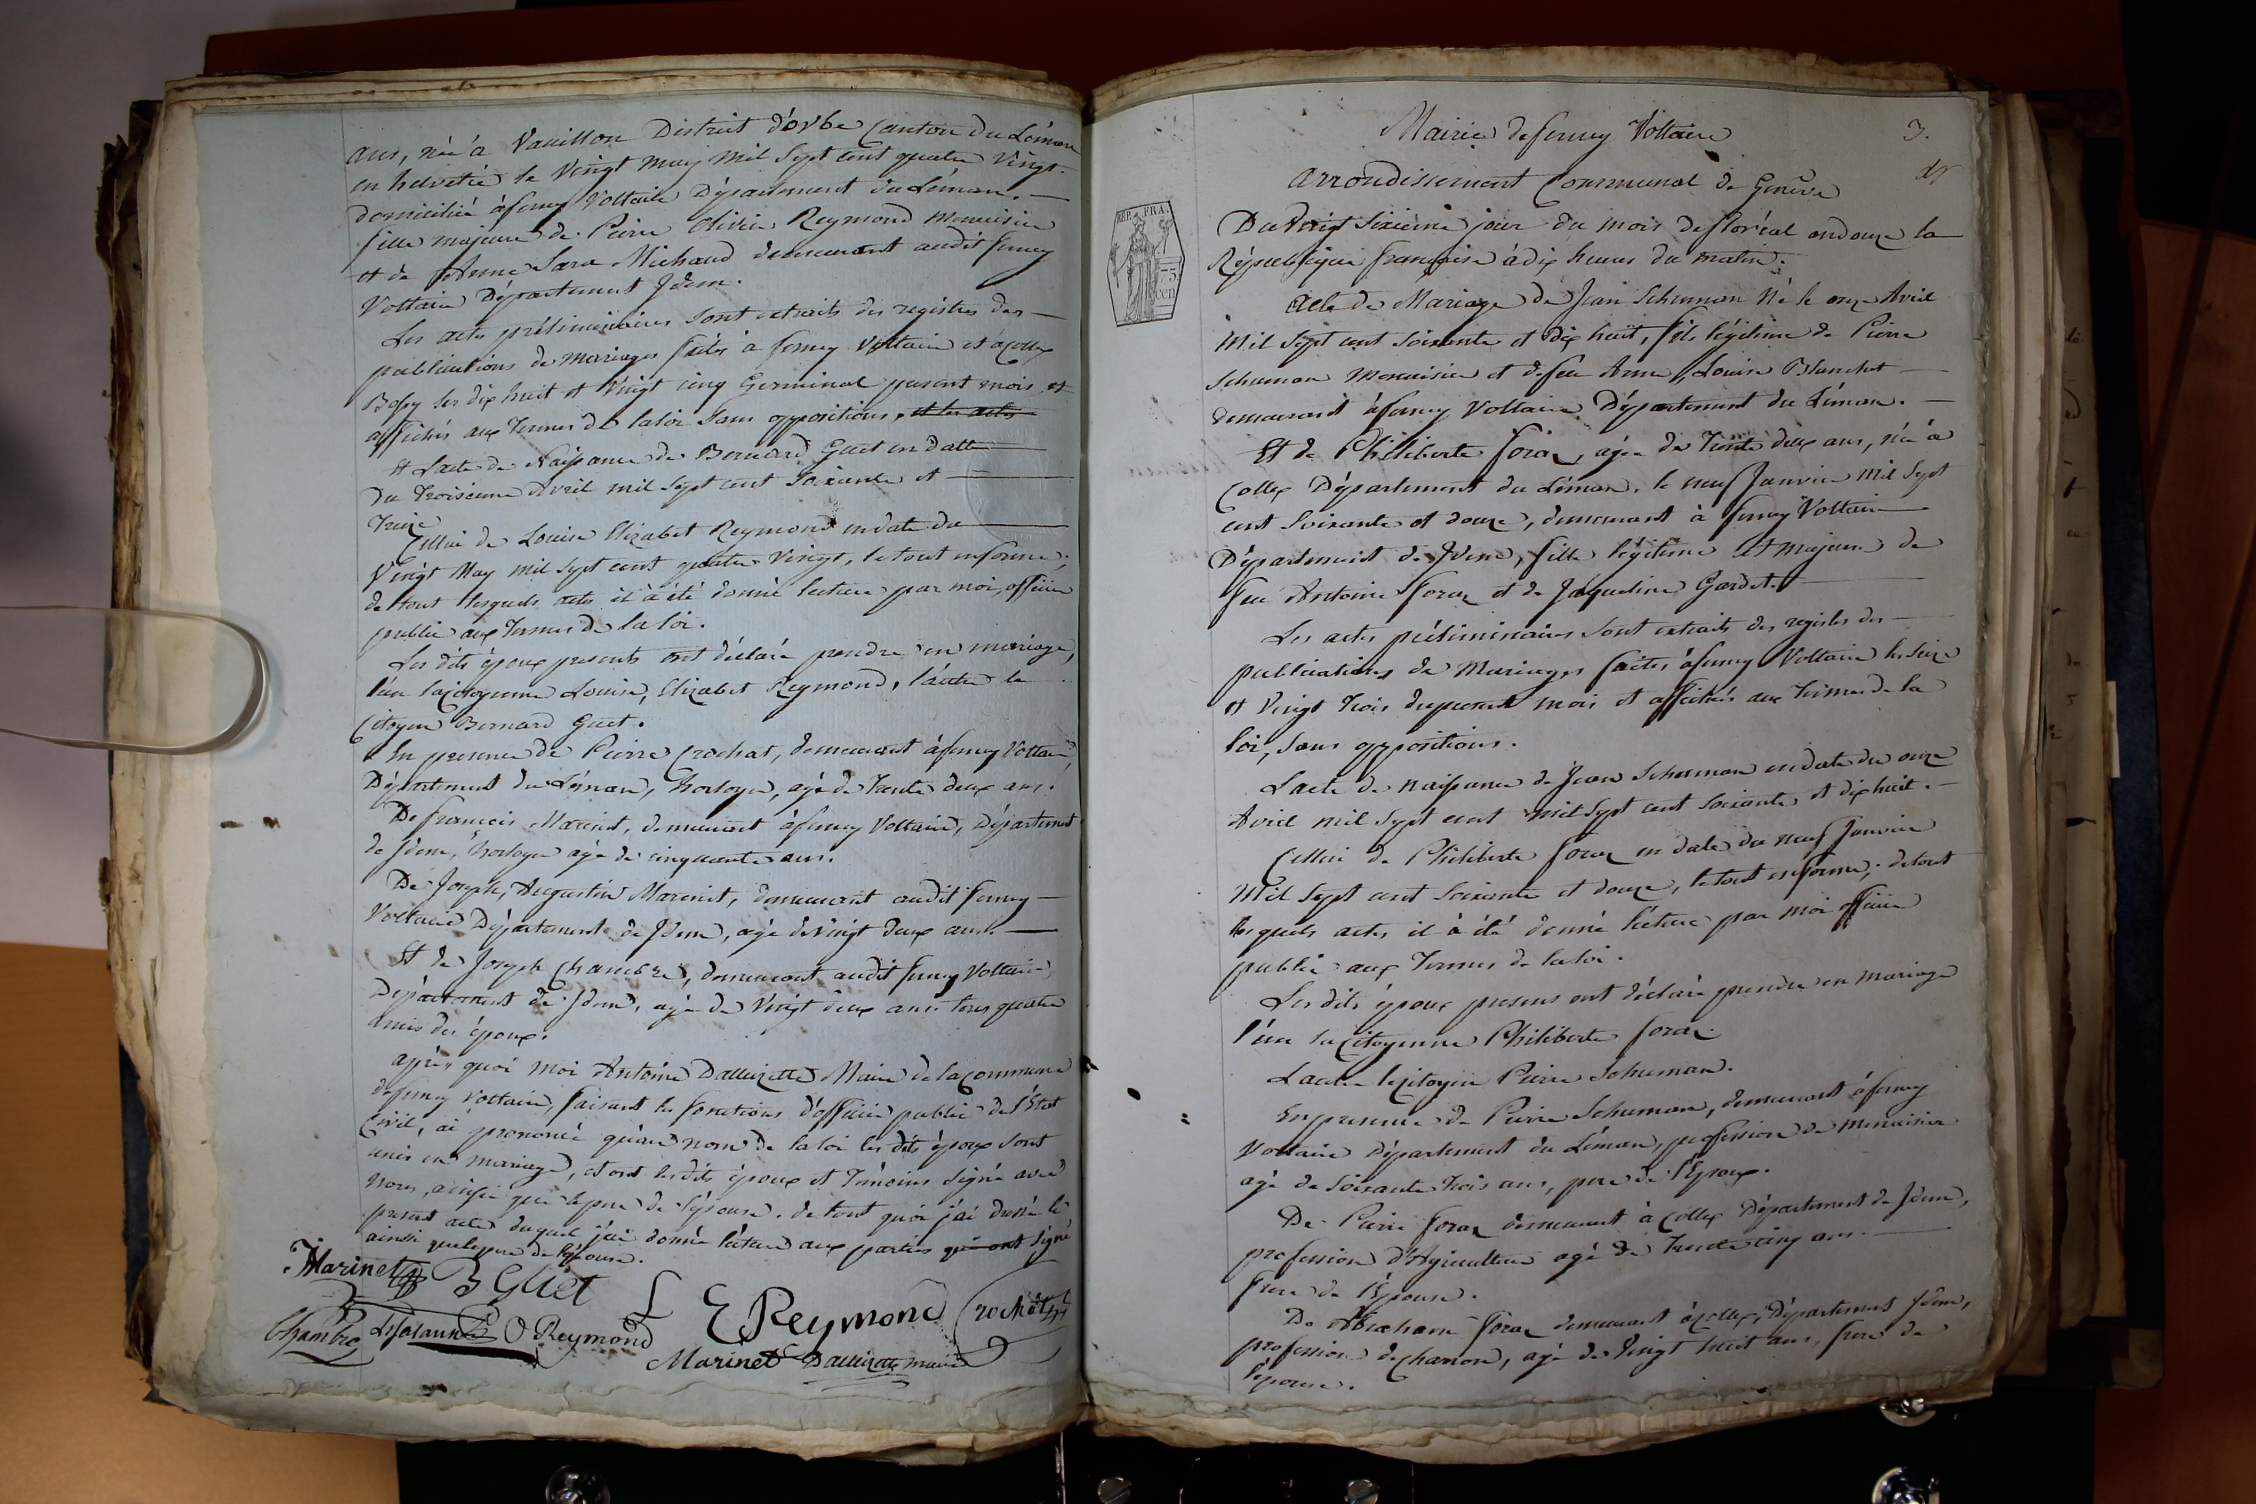 ans, née à Vaullion District d'orbe Canton du Léman
en helvétie le Vingt may mil Sept cent quatre Vingt.
domiciliée à ferney Voltaire Département du Léman. —
fille majeure de Pierre Olivier Reymond Menuisier
et de Anne Sara Michaud demeurant audit ferney
Voltaire Département Idem.
Les actes préliminaires sont extraits des registres des —
publications de mariages faites à ferney Voltaire et à Collex
Bossy les dix huit et Vingt cinq Germinal present mois et
affichés aux Termes de la loi sans oppositions, et les actes
Et L'acte de Naissance de Bernard Guet en datte
du Troisieme Avril mil Sept cent Soixante et
Treize
Cellui de Louise Elizabet Reymond en date du
Vingt May mil Sept cent quatre Vingt, le tout en forme;
de tout lesquels actes il à été donné lecture par moi officier
public aux Termes de la loi.
Les dits époux presents ont déclaré prendre en mariage,
l'un la citoyenne Louise, Elizabet Reymond, l'autre le
Citoyen Bernard Guet.
En presence de Pierre Crochat, demeurant à ferney Voltaire,
Département du Léman, horloger, agé de Trente deux ans.
De francois Marinet, demeurant à ferney Voltaire, Département
de Idem, horloger agé de cinquante ans.
De Joseph, Augustin Marinet, demeurant audit ferney —
Voltaire Département de Idem, agé de Vingt deux ans. —
Et de Joseph Chambre, demeurant audit ferney Voltaire
Département de Idem, agé de Vingt deux ans. tous quatre
amis des époux.
après quoi moi Antoine Dallizette Maire de la Commune
de ferney Voltaire, faisant les fonctions d'officier public de l'Etat
Civil, ai prononcé qu'au nom de la loi les dits époux sont
unis en mariage, et ont les dits époux et Témoins Signé avec
nous, ainsi que le pere de l'épouse. de tout quoi j'ai dressé le
present acte duquel j'ai donné lecture aux parties qui ont signé
ainsi que le pere de l'épouse.
JMarinet B Guet L E Reymond Crochat
Chambre O Reymond
Marinet Dallizette maire
Mairie de ferney Voltaire 3.
arrondissement Communal de Genève
Du Vingt Sixième jour du mois de floréal an douze la
République française à dix heures du matin.
REP. FRA.
75
cen
Acte de Mariage de Jean Schuman né le onze Avril
mil Sept cent soixante et dix huit, fils légitime de Pierre
Schuman Menuisier et de feu Anne, Louise Blanchet —
demeurant à ferney Voltaire Département du Léman. —
Et de Philiberte foraz, agée de Trente deux ans, née à
Collex Département du Léman, le neuf Janvier mil Sept
cent Soixante et douze, demeurant à ferney Voltaire
Département de Idem, fille légitime et majeure de
feu Antoine foraz et de Jaqueline Gardet. —
Les actes préliminaires sont extraits des registes des —
publications de Mariages faites à ferney Voltaire les Seize
et Vingt Trois du present mois et affichés aux Termes de la
loi, sans oppositions.
L'acte de naissance de Jean Schuman en date du onze
Avril mil Sept cent mil Sept cent soixante et dix huit. —
Cellui de Philiberte foraz en date du neuf Janvier
Mil Sept cent Soixante et douze, le tout en forme; de tout
les quels actes il à été donné lecture par moi officier
public aux Termes de la loi.
Les dits époux presens ont déclaré prendre en mariage
l'un la Citoyenne Philiberte foraz.
L'autre le Citoyen Pierre Schuman.
En presence de Pierre Schuman, demeurant à ferney
Voltaire Département du Léman, profession de menuisier
agé de Soixante Trois ans, pere de l'Epoux.
De Pierre foraz demeurant à Collex Département de Idem,
profession d'Agriculteur agé de Trente cinq ans. —
frere de l'Epouse.
De Abraham foraz demeurant à Collex, Département Idem,
profession de charron, agé de Vingt huit ans, frere de
l'épouse.